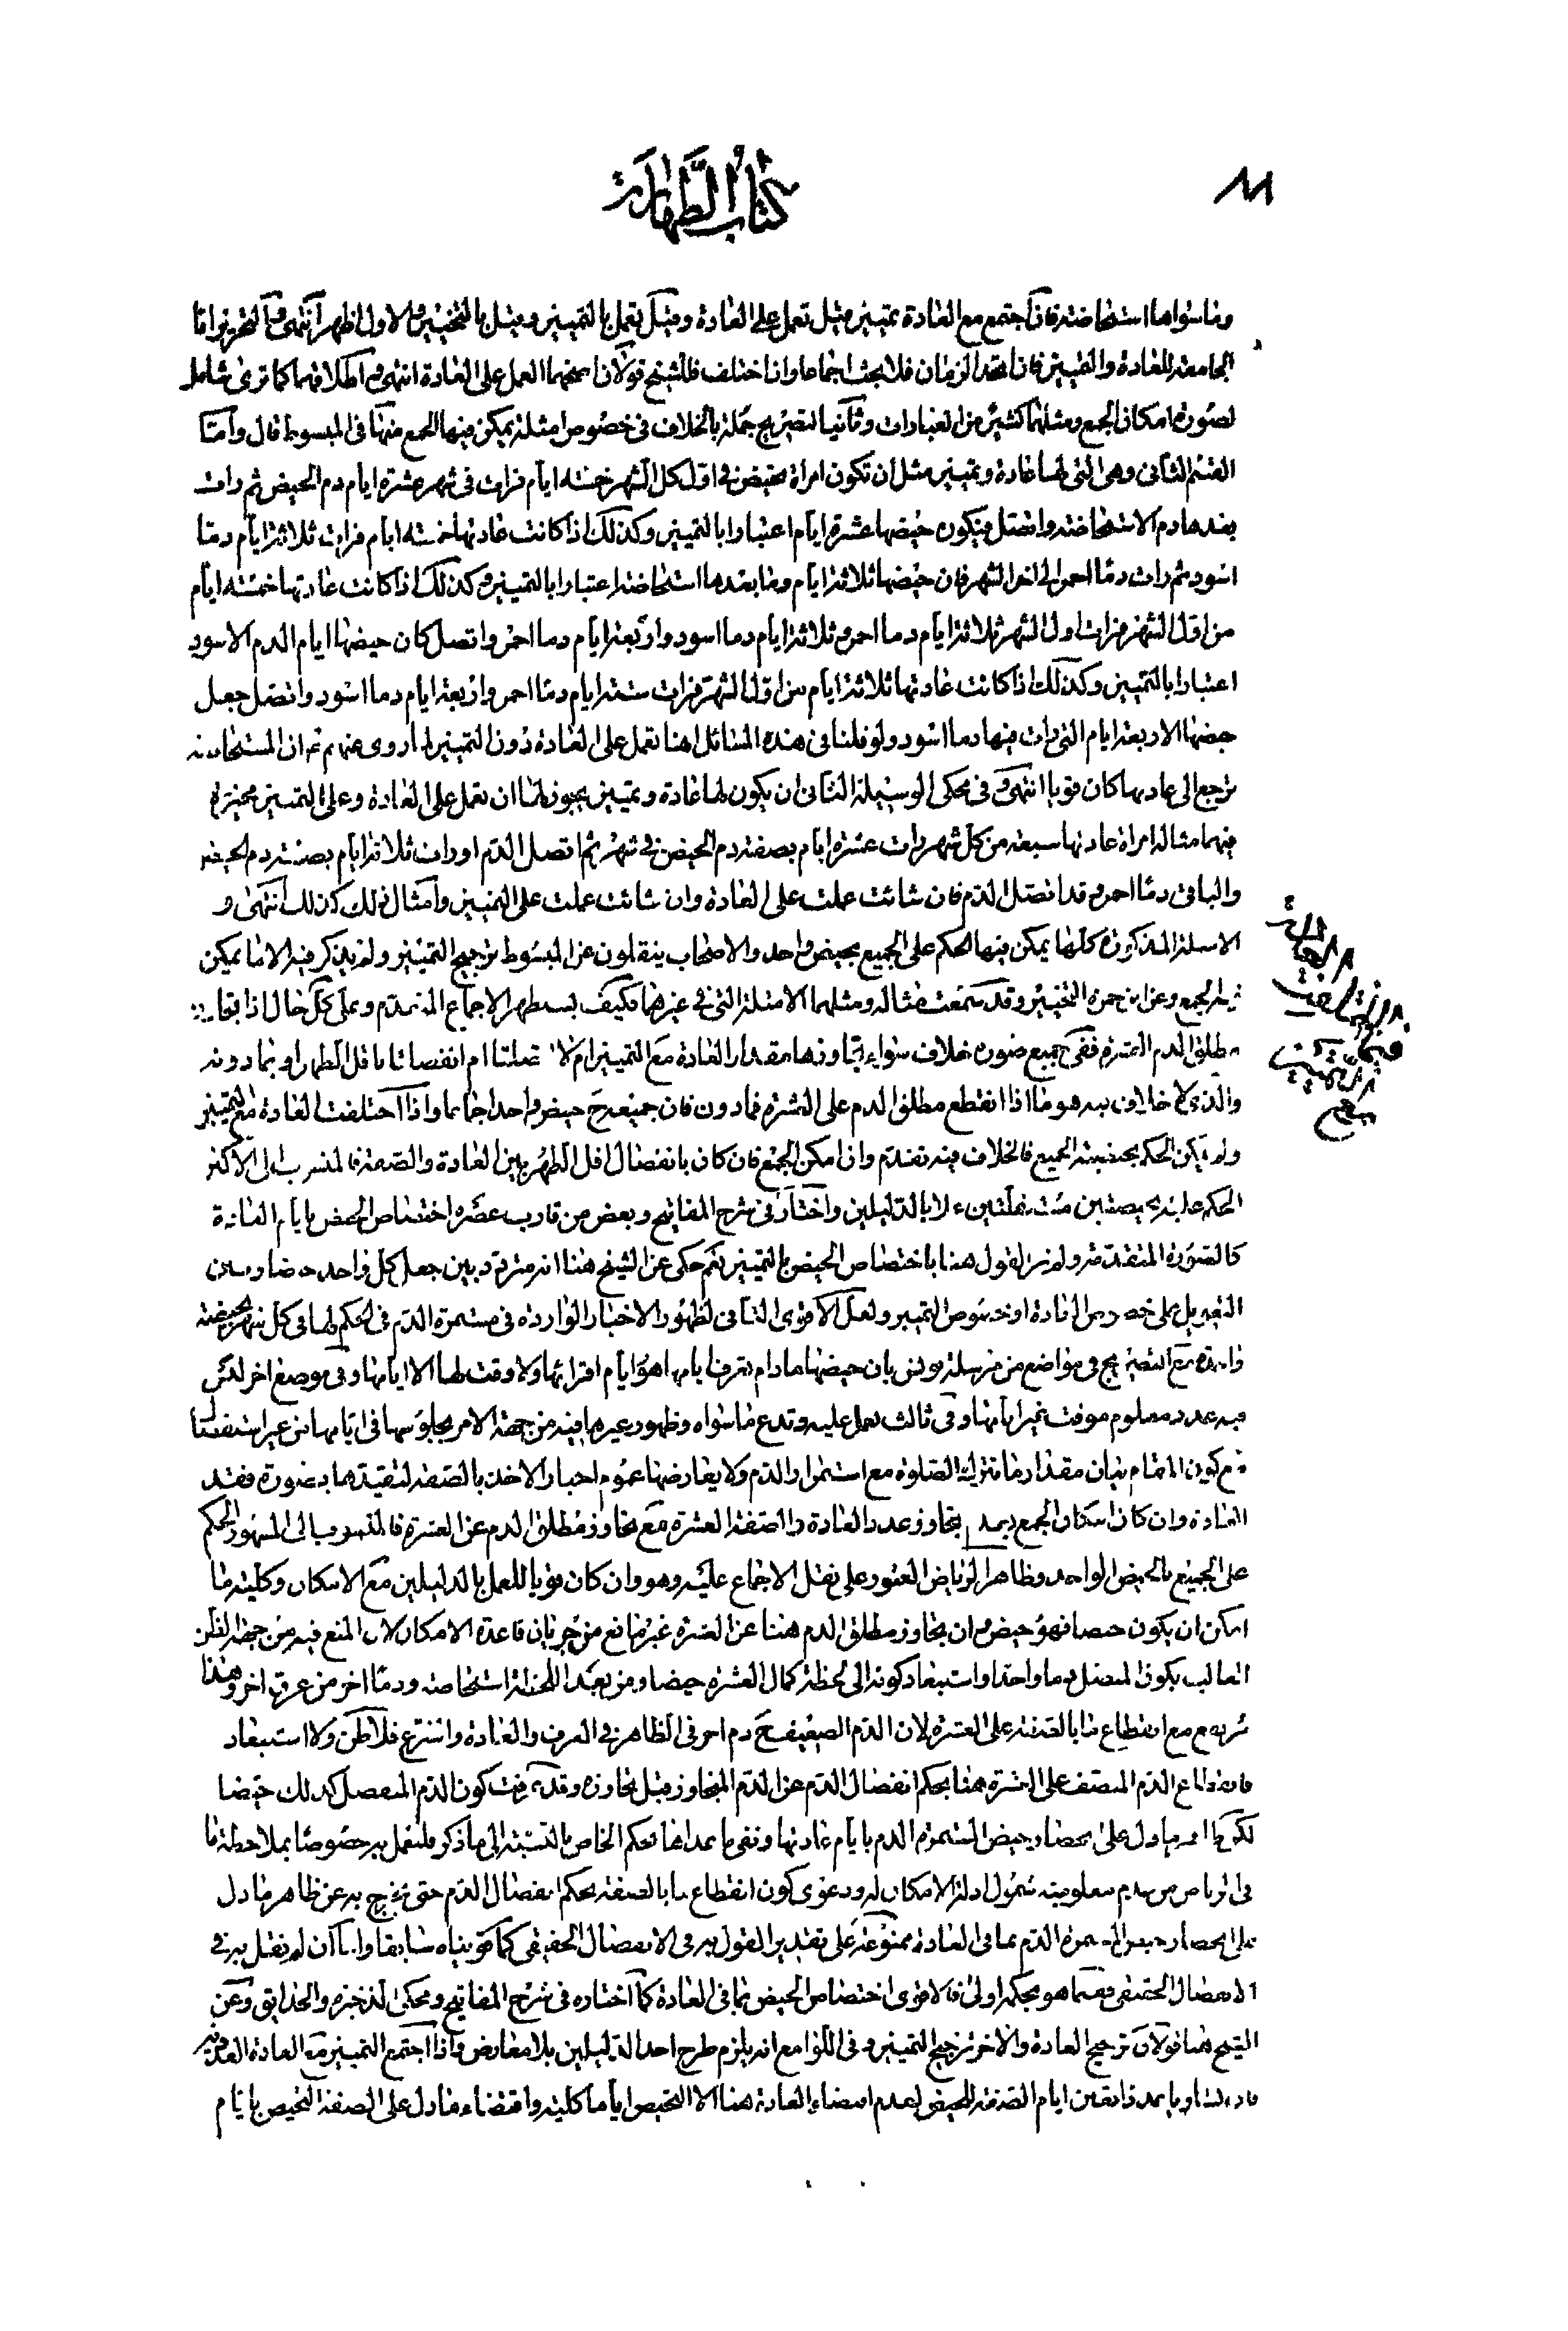 ٨٨
كتاب الطهارة
وما سواها استحاضة فان اجتمع مع العادة تمييز قيل تعمل على العادة وقيل تعمل بالتمييز وقيل بالتخيير والاول اظهر انتهى و التحرير اما
الجامعة للعادة والتمييز فان اتحد الزمان فلا بحث اجماعا وان اختلف فللشيخ قولان اصحهما العمل على العادة انتهى و اطلاقهما كما ترى شامل
لصورة امكان الجمع ومثلهما كثير من العبارات وثانيا لتصريح جملة بالخلاف في خصوص امثلة يمكن فيها الجمع منها في المبسوط قال وامّا
القسم الثاني وهي التي لها عادة وتمييز مثل ان تكون امراة تحيض في اول كل الشهر خمسة ايام فرات في شهر عشرة ايام دم الحيض ثم رات
بعدها دم الاستحاضة واتصل فيكون حيضها عشرة ايام اعتبارا بالتمييز وكذلك اذا كانت عادتها خمسة ايام فرات ثلاثة ايام دما
اسود ثم رات دما احمر الى اخر الشهر فان حيضها ثلاثة ايام وما بعدها استحاضة اعتبارا بالتمييز وكذلك اذا كانت عادتها خمسة ايام
من اول الشهر فرات اول الشهر ثلاثة ايام دما احمر وثلاثة ايام دما اسود واربعة ايام دما احمر واتصل كان حيضها ايام الدم الاسود
اعتبارا بالتمييز وكذلك اذا كانت عادتها ثلاثة ايام من اول الشهر فرات ستة ايام دما احمر واربعة ايام دما اسود واتصل جعل
حيضها الاربعة ايام التي رات فيها دما اسود ولو قلنا في هذه المسائل اهنا تعمل على العادة دون التمييز لما روى عنهم ان المستحاضة
ترجع الى عادتها كان قويا انتهى و في محكى الوسيلة الثاني ان يكون لها عادة وتمييز يجوز لها ان تعمل على العادة وعلى التمييز مخيرة
فيهما مثاله امراة عادتها سبعة من كل شهر رات عشرة ايام بصفة دم الحيض في شهر ثم اتصل الدم او رات ثلاثة ايام بصفة دم الحيض
والباقي دما احمر وقد اتصل الدم فان شائت عملت على العادة وان شائت عملت على التمييز وامثال ذلك كذلك انتهى و
الامثلة المذكورة كلها يمكن فيها الحكم على الجميع بحيض واحد والاصحاب ينقلون عن المبسوط ترجيح التمييز ولم يذكر فيه الا ما يمكن
فيه الجمع وعن ابن حمزة التخيير وقد سمعت مثاله ومثلهما الامثلة التي في غيرهما فكيف يستظهر الاجماع المتقدم وعلى كل حال اذا تجاوز
مطلق الدم العشرة ففي جميع صوره خلاف سواء تجاوزها مقدار العادة مع التمييز ام لا اتصلتا ام انفصلتا باقل الطهر او بما دونه
والذي لا خلاف فيه هو ما اذا انقطع مطلق الدم على العشرة فما دون فان جميعه ح حيض واحد اجماعا واذا اختلفت العادة مع التمييز
ولم يكن الحكم بحيضية الجميع فالخلاف فيه تقدم وان امكن الجمع فان كان بانفصال اقل الطهر بين العادة والصفة فالمنسوب الى الاكثر
الحكم عليه بحيضتين مستقلتين عملا بالدليلين واختار في شرح المفاتيح وبعض من قارب عصره اختصاص الحيض بايام العادة
كالصورة المتقدمة ولم نر القول هنا باختصاص الحيض بالتمييز نعم حكى عن الشيخ هنا انه متردد بين جعل كل واحد حيضا وبين
التعويل على خصوص العادة او خصوص التمييز ولعل الاقوى الثاني لظهور الاخبار الواردة في مستمرة الدم في الحكم لها في كل شهر بحيضة
واحدة مع التصريح في مواضع من مرسلة يونس بان حيضها ما دام تعرف ايامها هو ايام اقرائها ولا وقت لها الا ايامها وفي موضع اخر ليس
فيه عدد معلوم موقت غير ايامها وفي ثالث تعمل عليه وتدع ما سواه وظهور غيرها فيه من جهة الامر بجلوسها في ايامها من غير استفصال
مع كون المقام بيان مقدار ما تترك الصلوة مع استمرار الدم ولا يعارضها عموم اخبار الاخذ بالصفة لتقييدها بصورة فقد
العادة وان كان امكان الجمع بعدم تجاوز عدد العادة والصفة العشرة مع تجاوز مطلق الدم عن العشرة فالمنسوب الى المشهور الحكم
على الجميع بالحيض الواحد وظاهر الرياض العثور على نقل الاجماع عليه وهو وان كان قويا للعمل بالدليلين مع الامكان وكلية ما
امكن ان يكون حيضا فهو حيض وان تجاوز مطلق الدم هنا عن العشرة غير مانع من جريان قاعدة الامكان لان المنع فيه من جهة الظن
الغالب بكون المتصل دما واحدا واستبعاد كونه الى لحظة كمال العشرة حيضا ومن بعد اللحظة استحاضة ودما اخر من عرق اخر وهذا
مرتفع مع انقطاع ما بالصفة على العشرة لان الدم الضعيف ح دم اخر في الظاهر في العرف والعادة والشرع فلا ظن ولا استبعاد
فانقطاع الدم المتصف على العشرة هنا بحكم انفصال الدم عن الدم المتجاوز قبل تجاوزه وقد عرفت كون الدم المنفصل كذلك حيضا
لكن ما دل على انحصار حيض المستمرة الدم بايام عادتها ونفي ما عداها بحكم الخاص بالنسبة الى ما ذكر فلنعمل به خصوصا بملاحظة ما
في الرياض من عدم معلومية شمول ادلة الامكان له ودعوى كون انقطاع ما بالصفة بحكم انفصال الدم حتى نخرج به عن ظاهر ما دل
على انحصار حيض المستمرة الدم بما في العادة ممنوعة على تقدير القول به في الانفصال الحقيقي كما قويناه سابقا واما ان لم نقل به في
الانفصال الحقيقي ففيما هو بحكمه اولى فالاقوى اختصاص الحيض بما في العادة كما اختاره في شرح المفاتيح ومحكى الذخيرة والحدايق وعن
الشيخ هنا قولان ترجيح العادة والاخر ترجيح التمييز وفي اللوامع انه يلزم طرح احد الدليلين بلا معارض واذا اجتمع التمييز مع العادة العددية
ايام الصفة للحيض لعدم اقتضاء العادة هنا الا التحيض اياما كلية واقتضاء ما دل على الصفة التحيض بايام